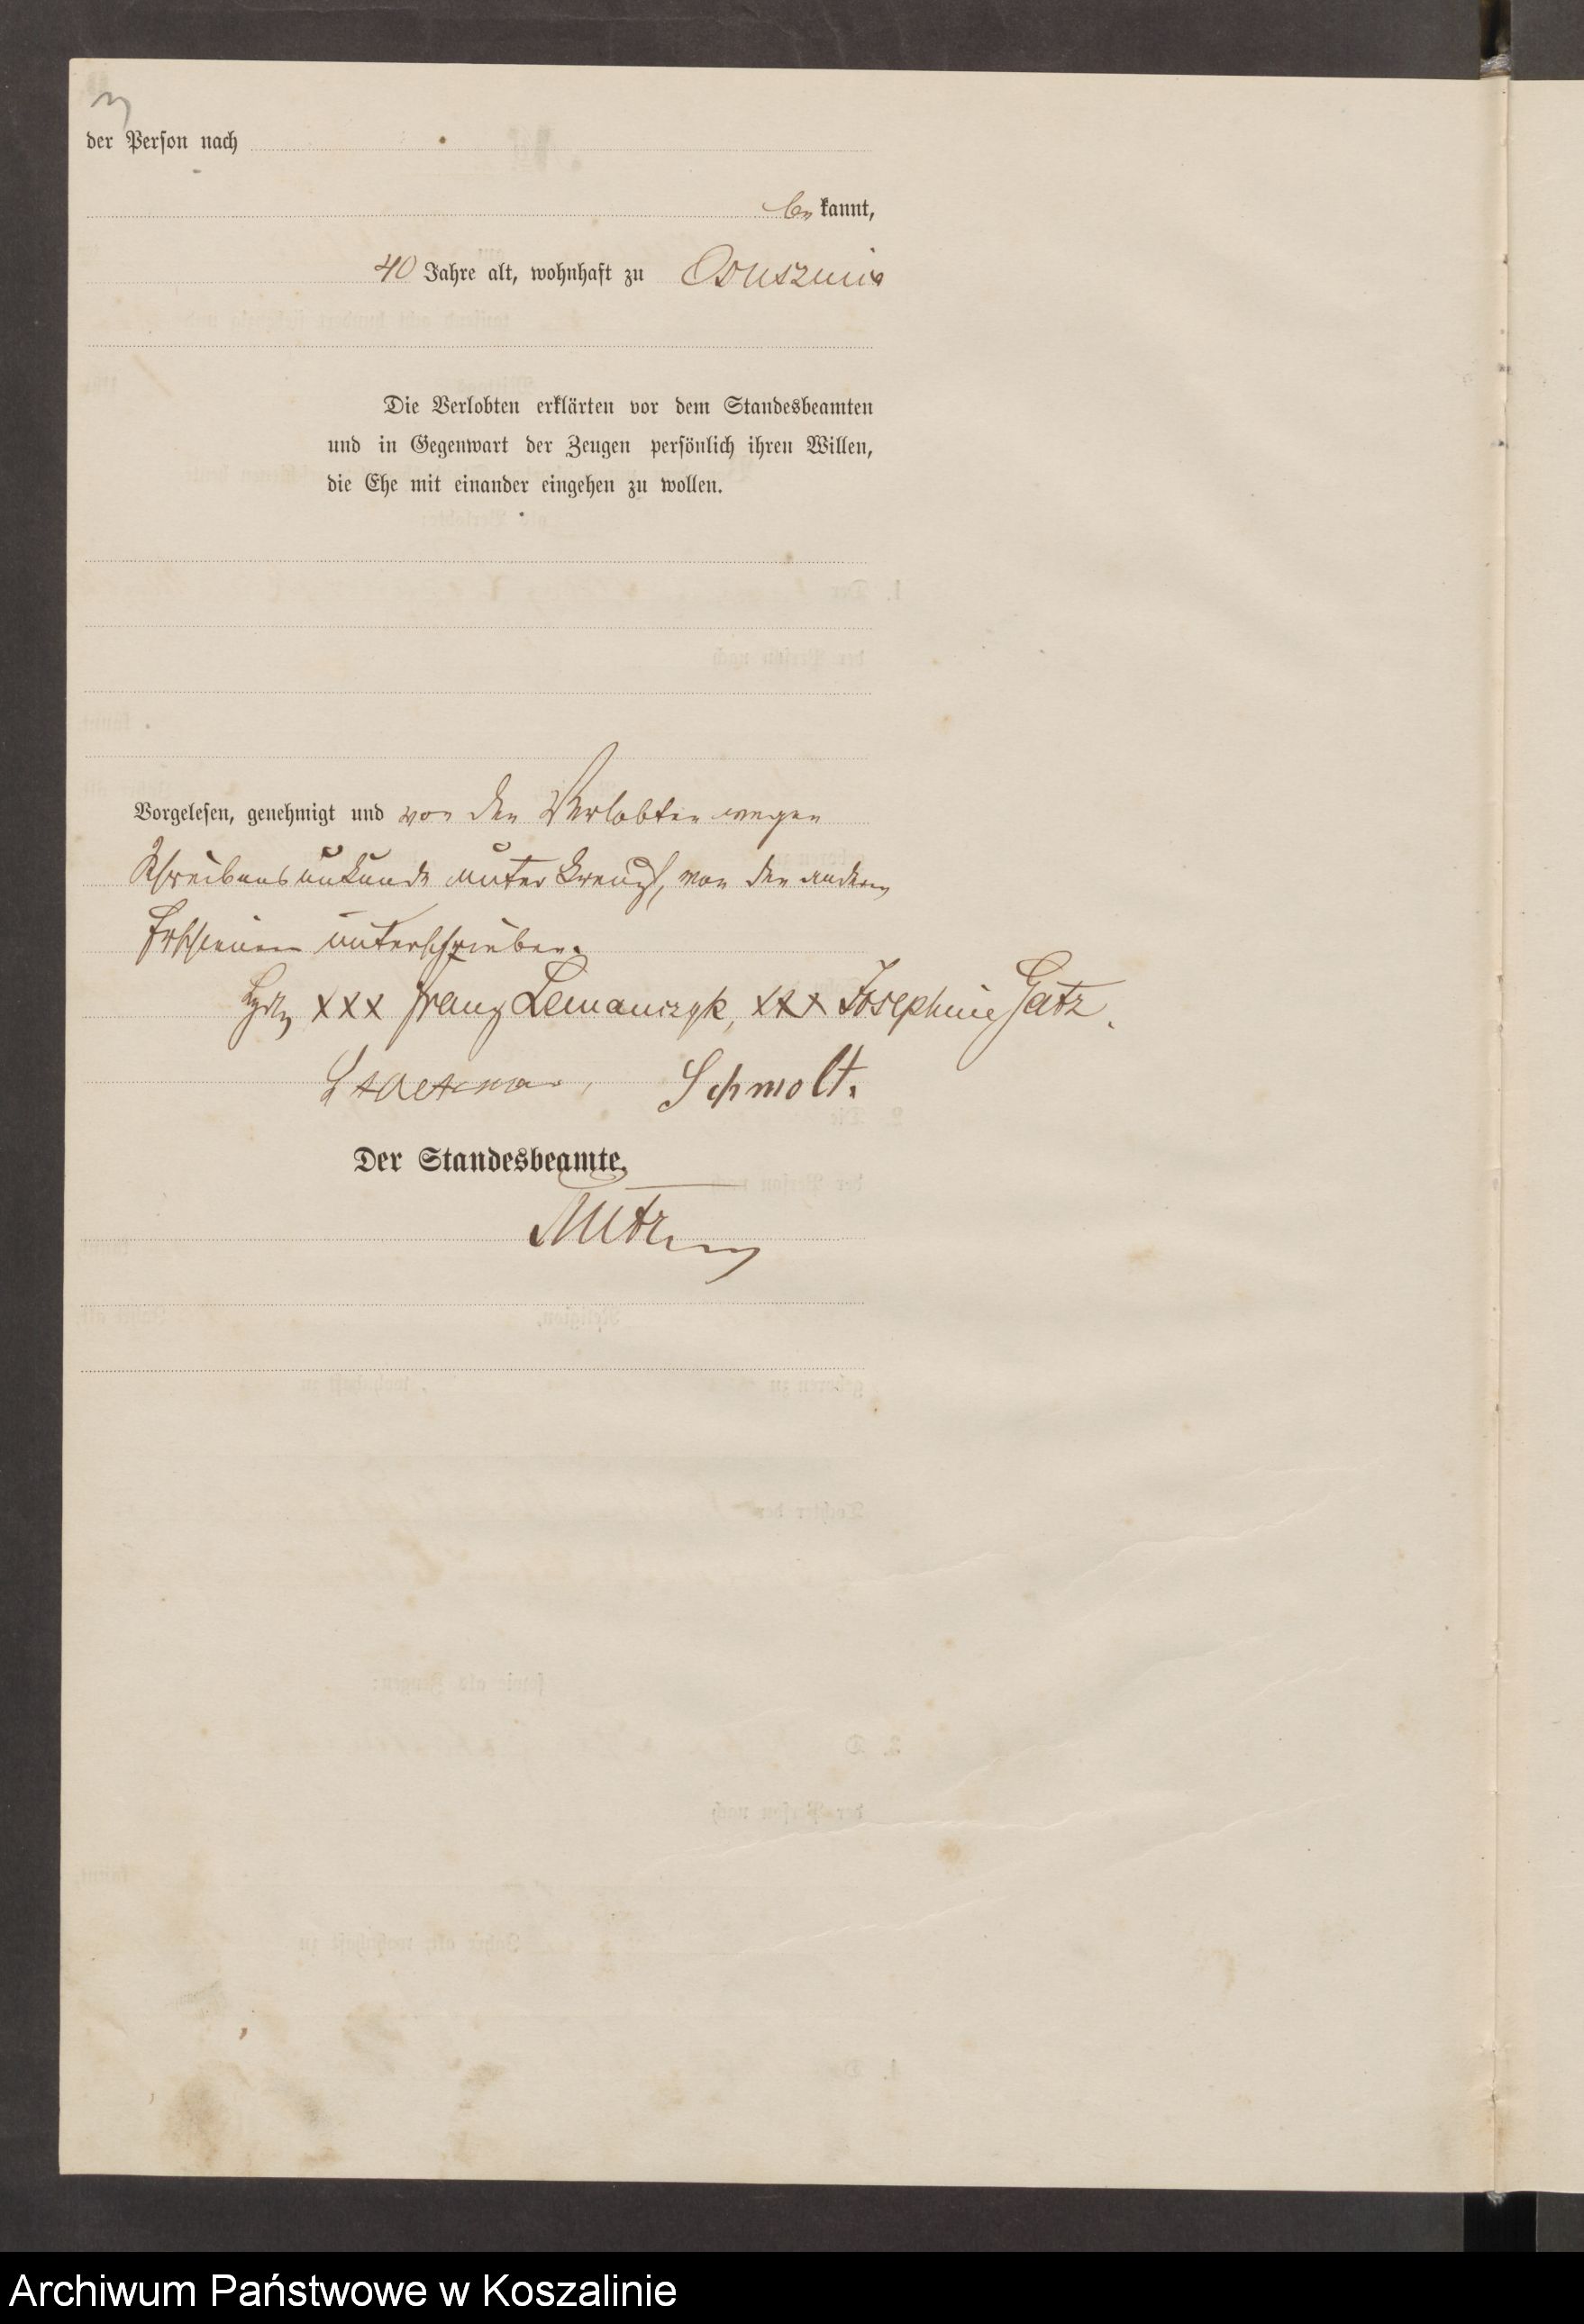 der Person nach
be kannt,
40 Jahre alt, wohnhaft zu Osusznica
Die Verlobten erklärten vor dem Standesbeamten
und in Gegenwart der Zeugen persönlich ihren Willen,
die Ehe mit einander eingehen zu wollen.
Vorgelesen, genehmigt und von den Verlobten wegen
Schreibensunkunde unterkreuzt, von den andern
Erschienenen unterschrieben.
xxx Franz Lemanczyk, xxx Josephine Gatz.
Schmolt.
Der Standesbeamte.
Archiwum Państwowe w Koszalinie